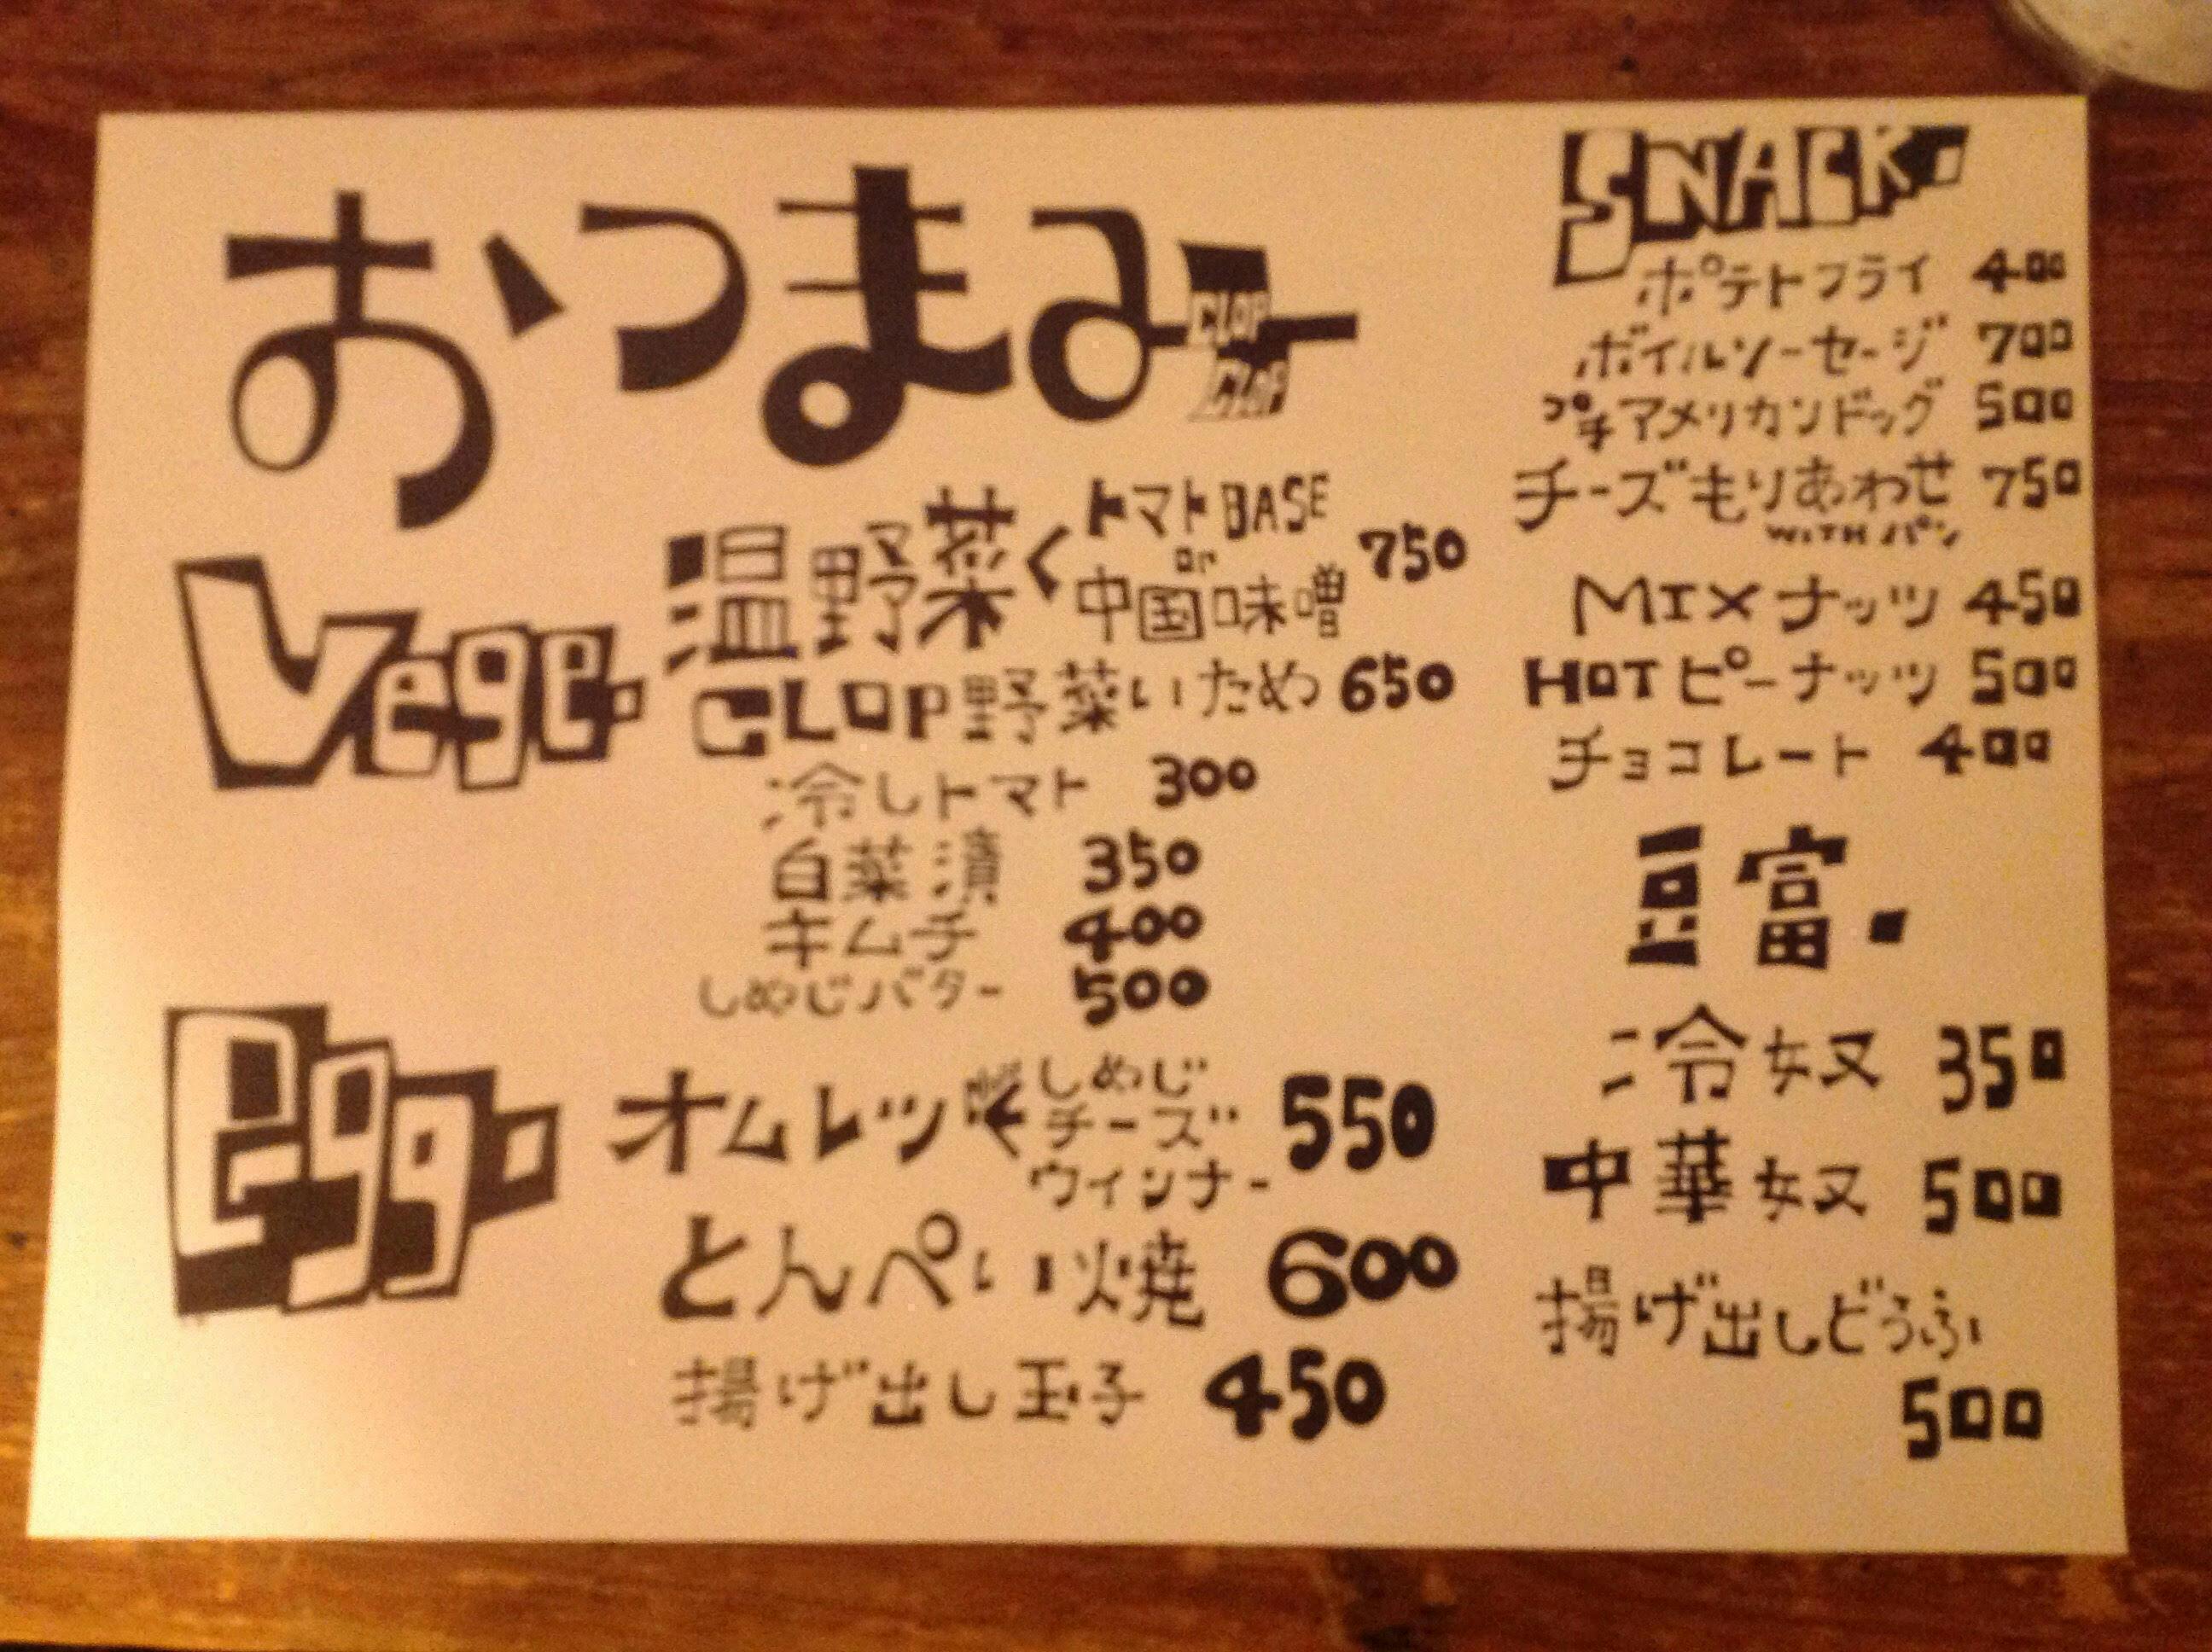 おつまみ
CLOP
CLOP
Vege.
温野菜く トマトBASE
or
中国味噌
750
CLOP野菜いため 650
冷しトマト 300
白菜漬 350
キムチ 400
しめじバター 500
Egg.
オムレツ
しめじ
チーズ
ウィンナー
550
とんぺい焼 600
揚げ出し玉子 450
SNACK.
ポテトフライ 400
ボイルソーセージ 700
プチアメリカンドッグ 500
チーズもりあわせ 750
WITH パン
MIXナッツ 450
HOTピーナッツ 500
チョコレート 400
豆富.
冷奴 350
中華奴 500
揚げ出しどうふ
500